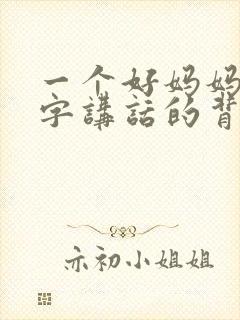 一个好妈妈
字講話的背
亦初小姐姐